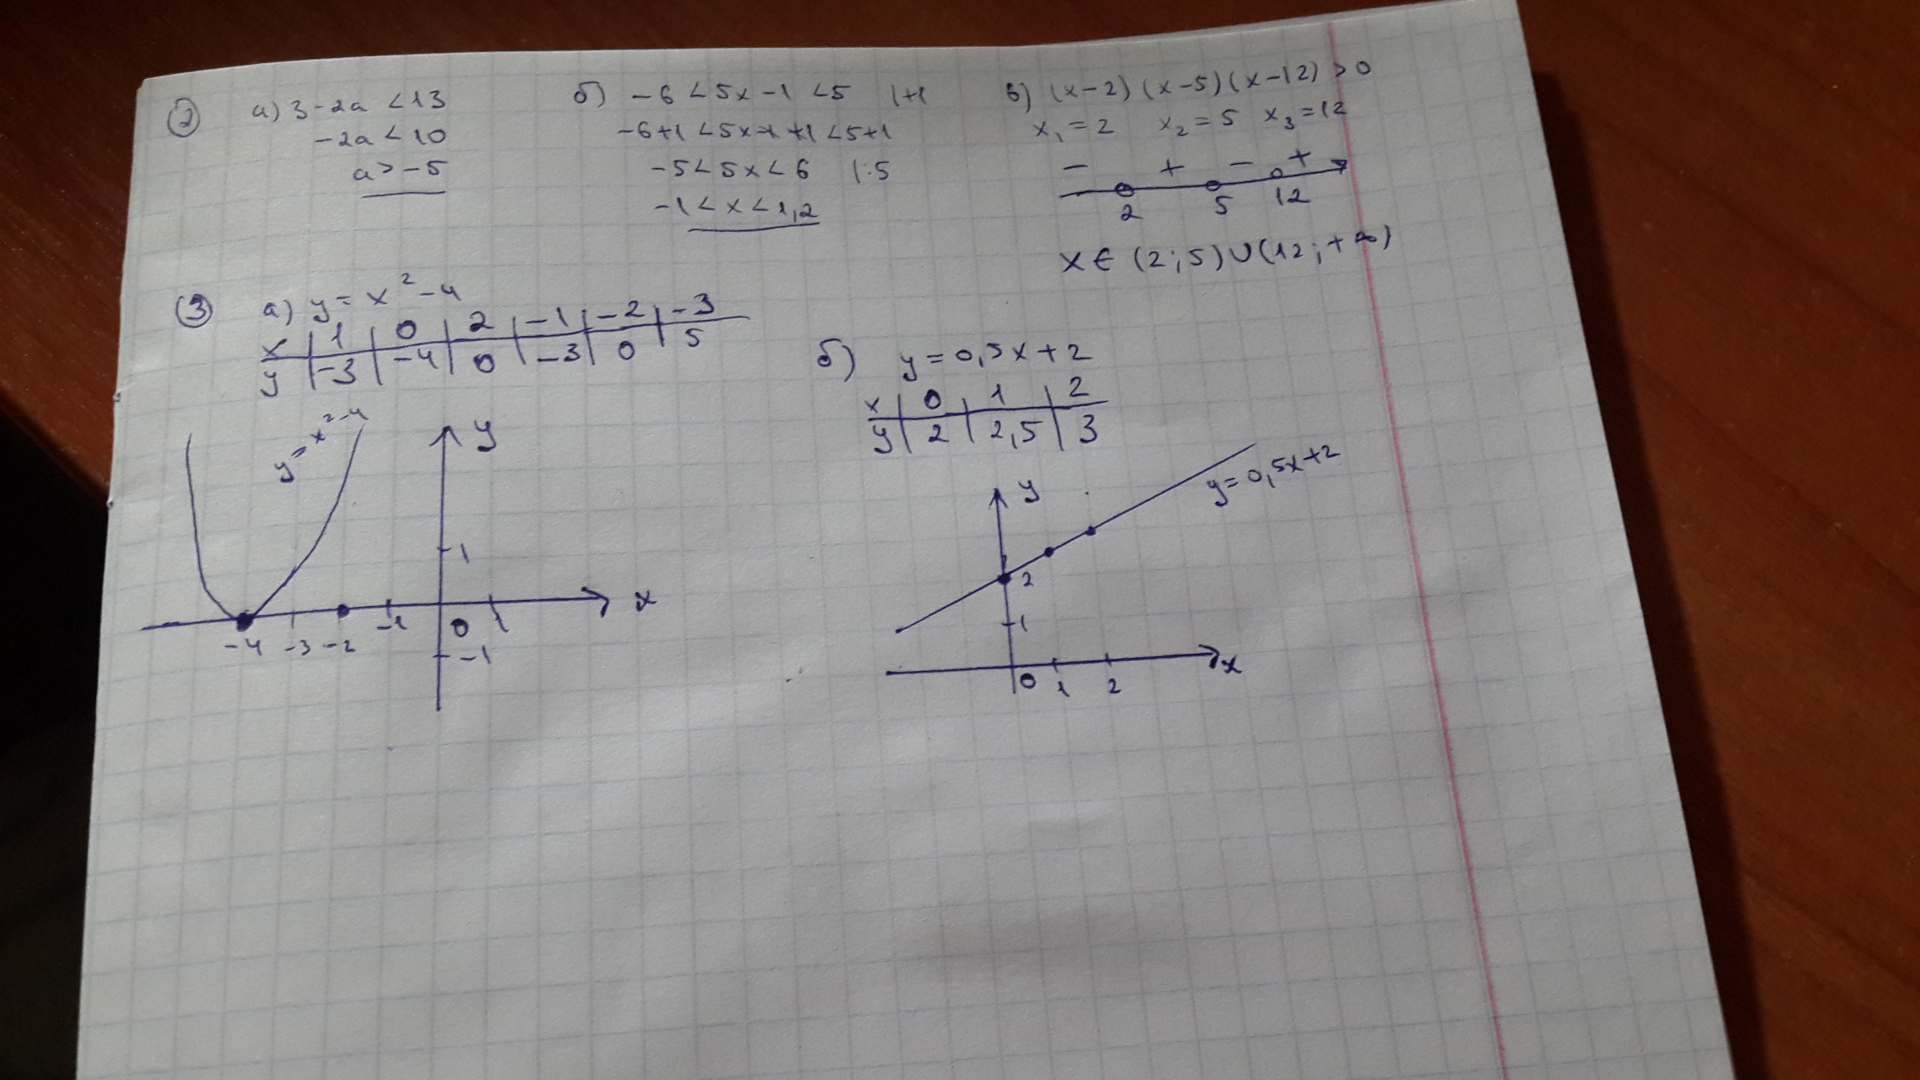 2 а) 3-2a <13
-2a <10
a > -5
б) -6 <5x -1 <5 |+1
-6+1 <5x-1 +1 <5+1
-5<5x<6 |:5
-1 < x < 1,2
в) (x-2) (x-5) (x-12) > 0
x₁ = 2 x₂ = 5 x₃ = 12
- + - +
2 5 12
x ∈ (2;5)∪(12;+∞)
3 а) y = x² - 4
x | 1 | 0 | 2 | -1 | -2 | -3
y | -3 | -4 | 0 | -3 | 0 | 5
y = x²-4
y
1
x
-4 -3 -2 -1 0 1
-1
б) y = 0,5x + 2
x | 0 | 1 | 2
y | 2 | 2,5 | 3
y = 0,5x+2
y
2
1
x
0 1 2